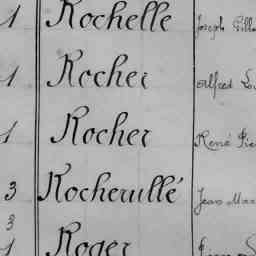 1 Rochelle Joseph
1 Rocher Alfred
1 Rocher René
3 Rocheruillé Jean
3
1 Roger